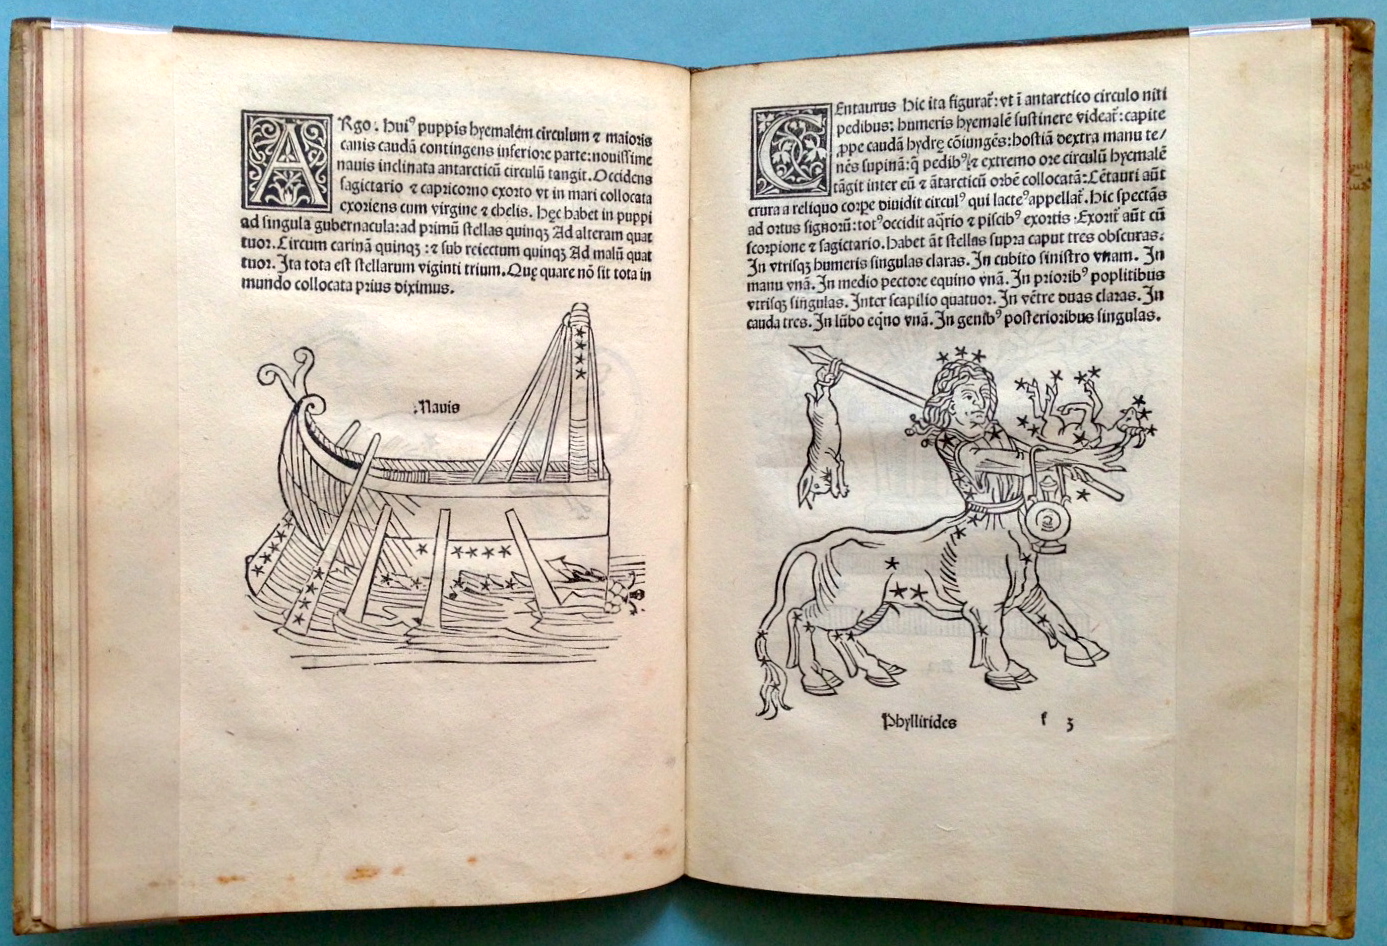 ARgo. Huiꝰ puppis hyemalem circulum ⁊ maioris
canis caudã contingens inferiore parte: nouissime
nauis inclinata antarcticũ circulũ tangit. Occidens
sagictario ⁊ capricorno exorto vt in mari collocata
exoriens cum virgine ⁊ chelis. Hęc habet in puppi
ad singula gubernacula: ad primũ stellas quinqꝫ Ad alteram quat
tuor. Circum carinã quinqꝫ: ⁊ sub reiectum quinqꝫ Ad malũ quat
tuor. Ita tota est stellarum viginti trium. Quę quare nõ sit tota in
mundo collocata prius diximus.
Nauis
CEntaurus hic ita figurat̃: vt ĩ antarctico circulo niti
pedibus: humeris hyemalẽ sustinere videat̃: capite
ꝓpe caudã hydrę cõiungẽs: hostiã dextra manu te/
nẽs supinã: q̃ pedibꝰ ⁊ extremo ore circulũ hyemalẽ
tãgit inter eũ ⁊ ãtarcticũ orbẽ collocatã: Cẽtauri aũt
crura a reliquo corꝑe diuidit circulꝰ qui lacteꝰ appellat̃. Hic spectãs
ad ortus signorũ: totꝰ occidit aq̃rio ⁊ piscibꝰ exortis. Exorit̃ aũt cũ
scorpione ⁊ sagictario. habet ãt stellas supra caput tres obscuras.
In vtrisqꝫ humeris singulas claras. In cubito sinistro vnam. In
manu vnã. In medio pectore equino vnã. In prioribꝰ poplitibus
vtrisqꝫ singulas. Inter scapilio quatuor. In vẽtre duas claras. In
cauda tres. In lũbo eq̃no vnã. In genibꝰ posterioribus singulas.
Phyllirides
f 3